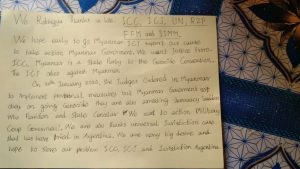 We Rohingya Thanks a lot. ICC, ICJ, UN, R2P
FFM and IIMM
We have early to go Myanmar ICJ report our Gambia
to take action Myanmar Government. We want Justice from
ICC. Myanmar is a State Party to the Genocide Convention.
The ICJ also against Myanmar.
On January 2020, the Judges Ordered in Myanmar
to implement provisional measures but Myanmar Government not
obey on going Genocide they are also
Win Myint and State Councilor We want to action Military
Coup Government. We are also thanks universal Jurisdiction case
that in Argentina. We are very big desire and
hope to solve our problem ICC, ICJ, and Jurisdiction Argentina